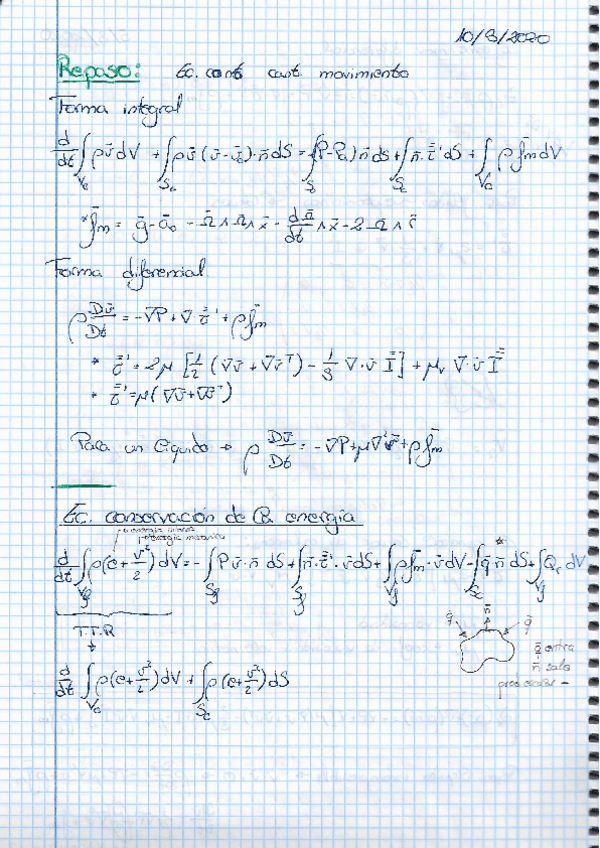 10/3/2020
Repaso: Ec. cont cant. movimiento
Forma integral
d/dt ∫_Vc ρv̄ dV + ∫_Sc ρv̄ (v̄ - v̄c)·n̄ dS = ∫_Sc -(P-Pa) n̄ dS + ∫_Sc n̄·τ̿' dS + ∫_Vc ρ f̄m dV
* f̄m = ḡ - ā₀ - Ω̄ ∧ Ω̄ ∧ x̄ - dΩ̄/dt ∧ x̄ - 2 Ω̄ ∧ v̄
Forma diferencial
ρ Dv̄/Dt = -∇P + ∇ τ̿' + ρ f̄m
* τ̿' = 2μ [1/2 (∇v̄ + ∇v̄ᵀ) - 1/3 ∇·v̄ I̿] + μv ∇·v̄ I̿
* τ̿' = μ(∇v̄ + ∇v̄ᵀ)
Para un líquido → ρ Dv̄/Dt = -∇P + μ∇²v̄ + ρ f̄m
Ec. conservación de la energía
→ energía interna
→ energía mecánica
d/dt ∫_Vf ρ(e + v²/2) dV = - ∫_Sf P v̄·n̄ dS + ∫_Sf n̄·τ̿'·v̄ dS + ∫_Vf ρ f̄m·v̄ dV - ∫_Sc q̄·n̄ dS + ∫_Vf Qr dV
*
T.T.R
↓
q̄ n̄ q̄
q̄ entra
n̄ sale
prod. escalar -
d/dt ∫_Vc ρ(e + v²/2) dV + ∫_Sc ρ(e + v²/2) dS